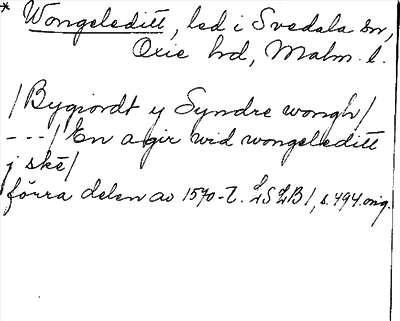 * Wongeleditt, led i Svedala sn,
Oxie hd, Malm. l.
/Bygiordt y Syndre wongh/
---/ En agir wid wongeleditt
j skė/
förra delen av 1570-t. LSLB1, s. 494. orig.